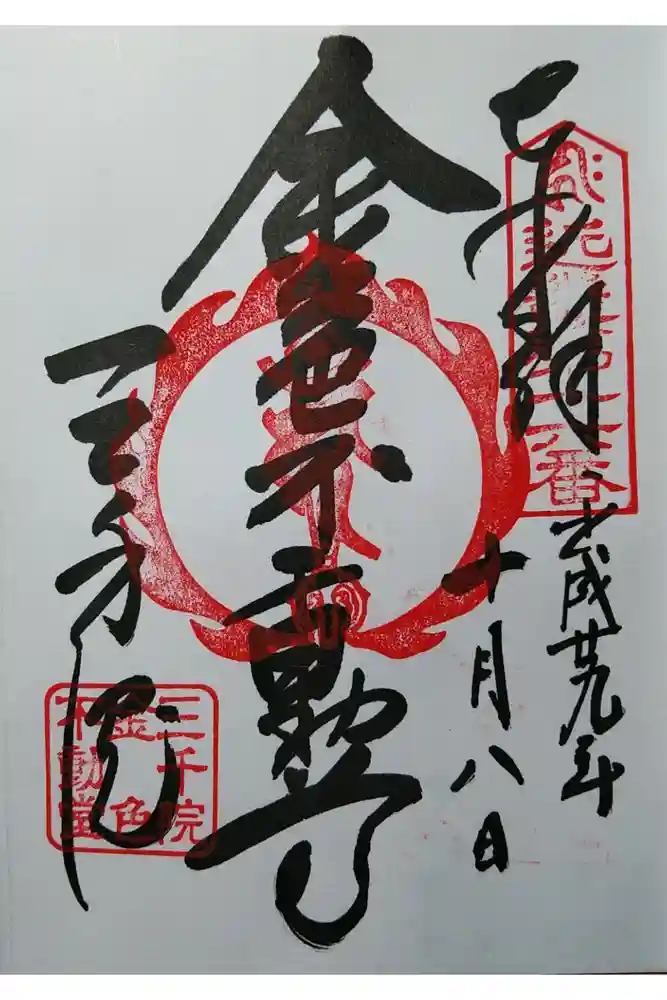 奉拝
平成廿九年
十月八日
金色不動尊
三千院
近畿三十六不動尊霊場
第十六番
三千院
金色
不動堂